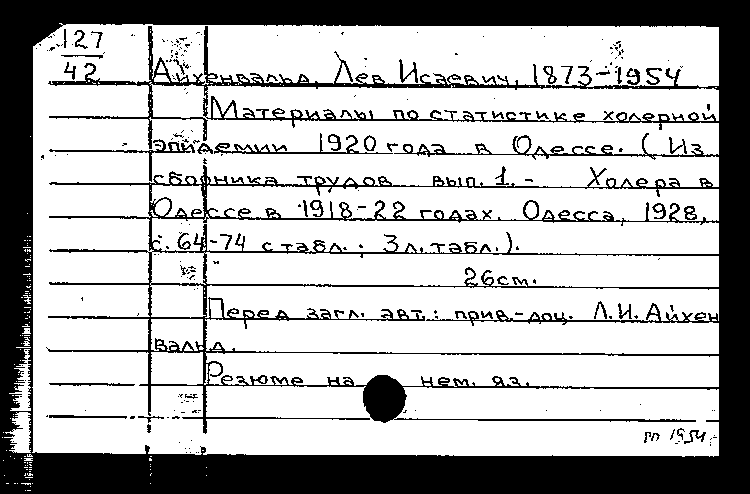 127
42
Айхенвальд, Лев Исаевич, 1873-1954
Материалы по статистике холерной
эпидемии 1920 года в Одессе. (Из
сборника трудов вып. 1. - Холера в
Одессе в 1918-22 годах. Одесса, 1928,
с. 64-74 с табл.; 3 л. табл.).
26 см.
Перед загл. авт.: прив.-доц. Л.И. Айхен
вальд.
Резюме на нем. яз.
пп 1954